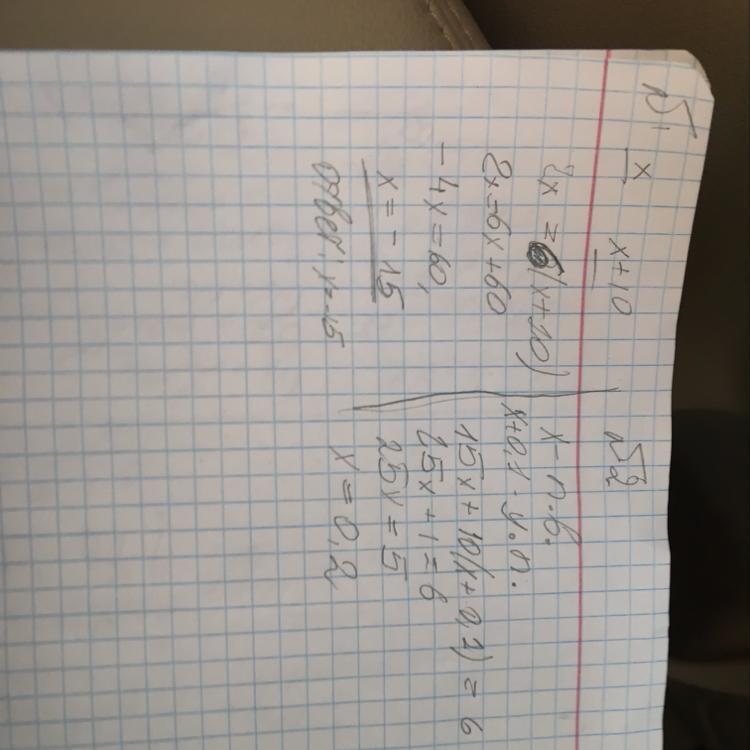 №1
x x+10
2x = 6(x+10)
2x=6x+60
-4x=60,
x=-15
Ответ: x=-15
№2
x - п.в.
x+0,1 - у.п.
15x+10(x+0,1)=6
25x+1=6
25x=5
x=0,2